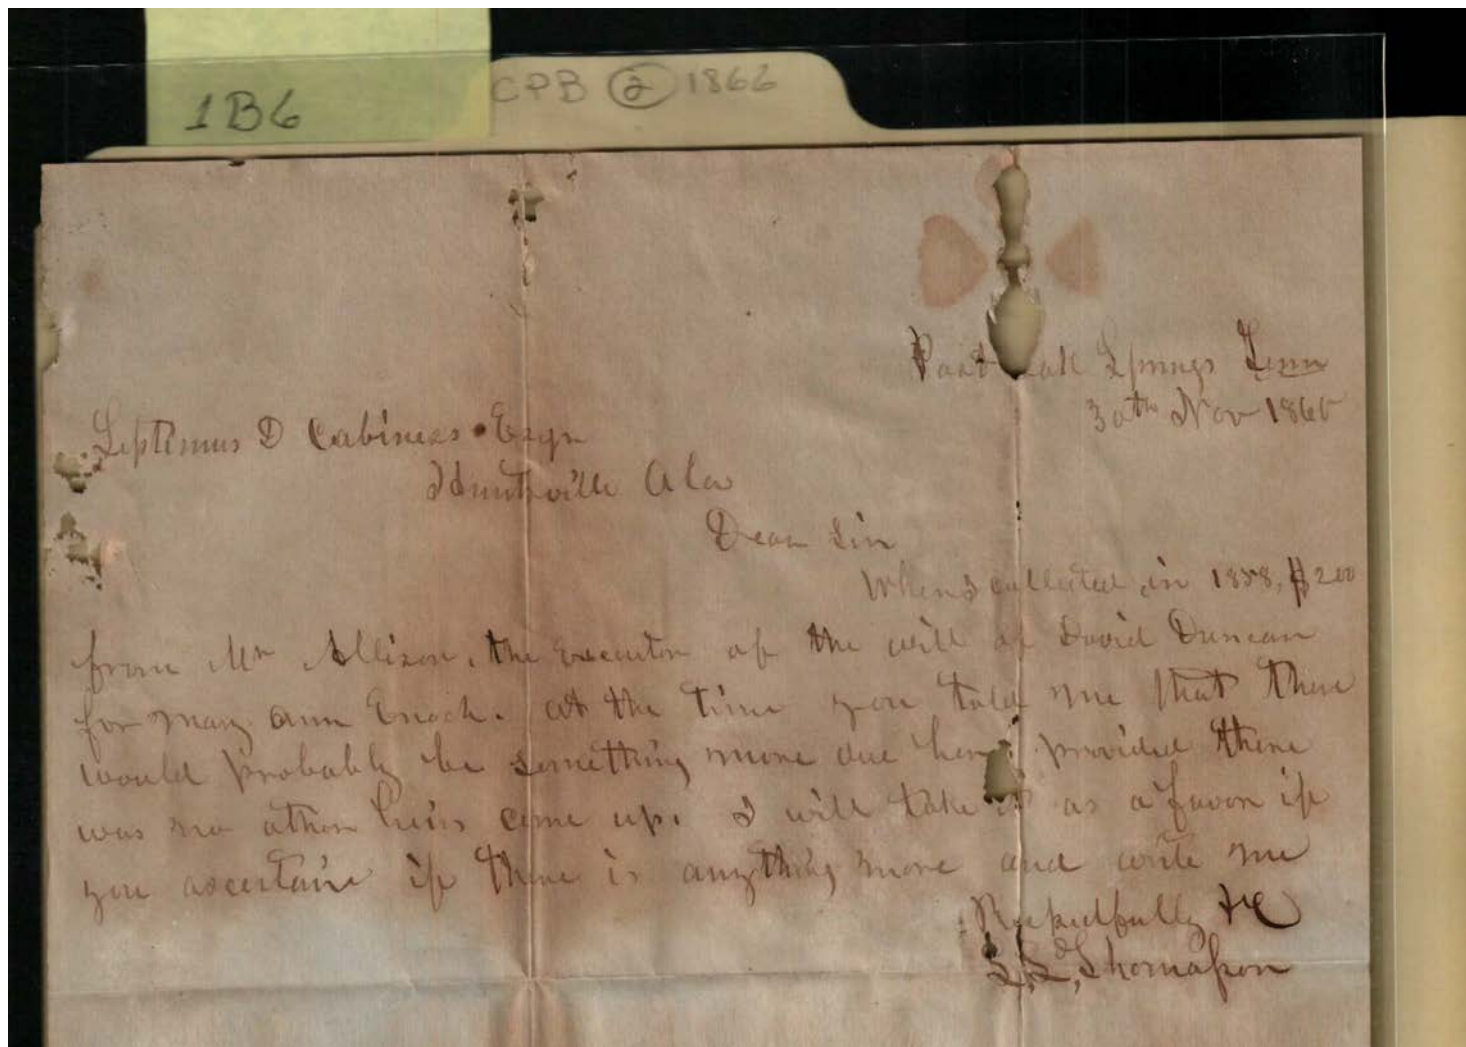 1B6
CPB 2 1866
Post Oak Springs Tenn
30th Nov 1866
Septimus D Cabiness Esqr
Huntsville Ala
Dear Sir
When I collected, in 1858, $200
from Mr Allison, the Executor of the will of David Duncan
for Mary Ann Enoch. at the time you told me that there
would probably be something more due her provided there
was no other heirs come up. I will take it as a favor if
you ascertain if there is anything more and write me
Respectfully &C
Thomason